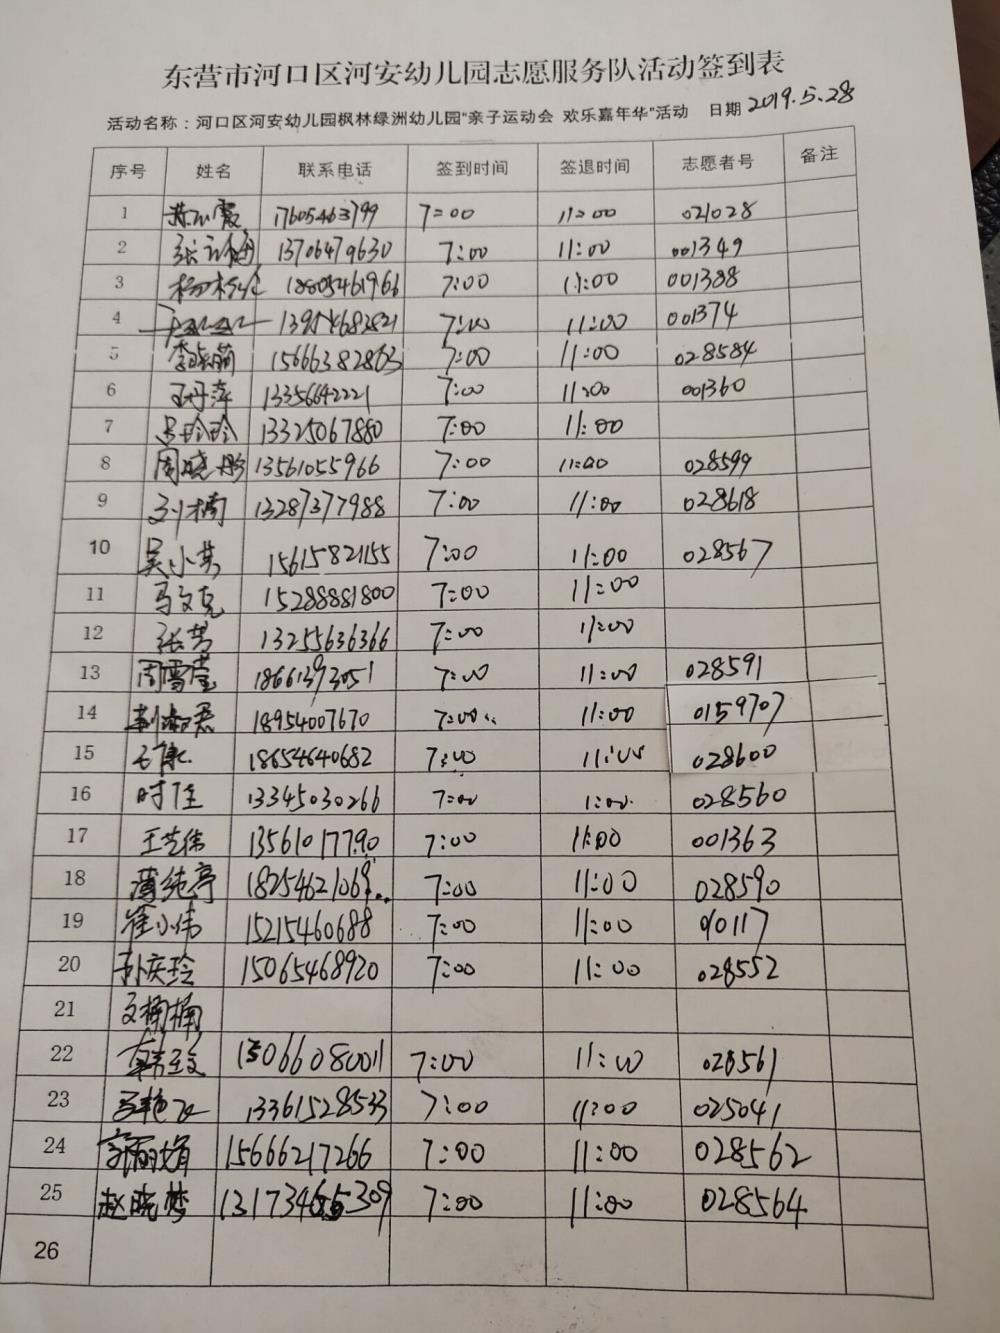 东营市河口区河安幼儿园志愿服务队活动签到表
活动名称：河口区河安幼儿园枫林绿洲幼儿园"亲子运动会 欢乐嘉年华"活动 日期 2019.5.28
序号 姓名 联系电话 签到时间 签退时间 志愿者号 备注
1 17605463799 7:00 11:00 021028
2 13706479630 7:00 11:00 001349
3 18805461966 7:00 11:00 001388
4 7:00 11:00 001374
5 15666382863 7:00 11:00 028584
6 王丹萍 13356642221 7:00 11:00 001360
7 吴玲玲 13325067880 7:00 11:00
8 周晓彤 13561055966 7:00 11:00 028599
9 刘楠 13287377988 7:00 11:00 028618
10 吴小芳 15615821155 7:00 11:00 028567
11 马文克 15288881800 7:00 11:00
12 张芳 13255636366 7:00 11:00
13 周雪莹 18661393051 7:00 11:00 028591
14 18954007670 7:00 11:00 0159707
15 石康 18654640682 7:00 11:00 028600
16 时佳 13345030266 7:00 1:00 028560
17 王艺伟 13561017790 7:00 11:00 001363
18 蒲纯亭 18254621069 7:00 11:00 028590
19 崔小伟 15215460688 7:00 11:00
20 孙庆玲 15065468920 7:00 11:00 028552
21 文楠楠
22 15066080011 7:00 11:00 028561
23 马艳飞 13361528533 7:00 11:00 025041
24 15666217266 7:00 11:00 028562
25 赵晓梦 7:00 11:00 028564
26